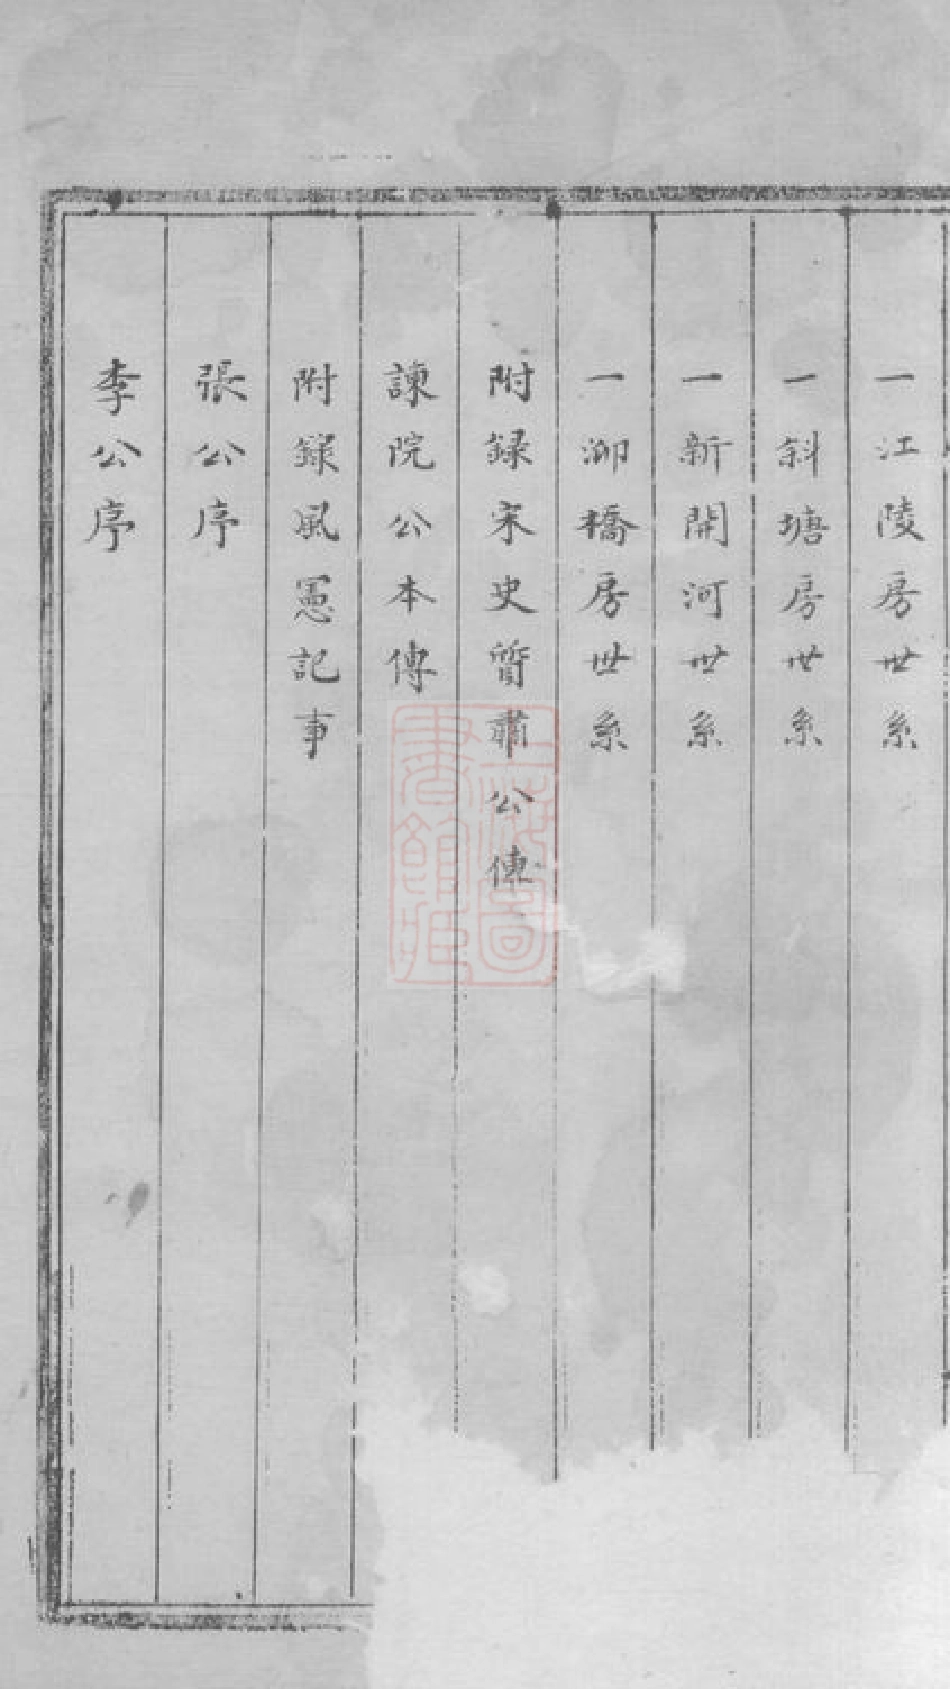 一江陵房世系
一斜塘房世系
一新開河世系
一泖橋房世系
附録宋史質肅公傳
諫院公本傳
附錄風憲記事
張公序
李公序
上海圖書館藏